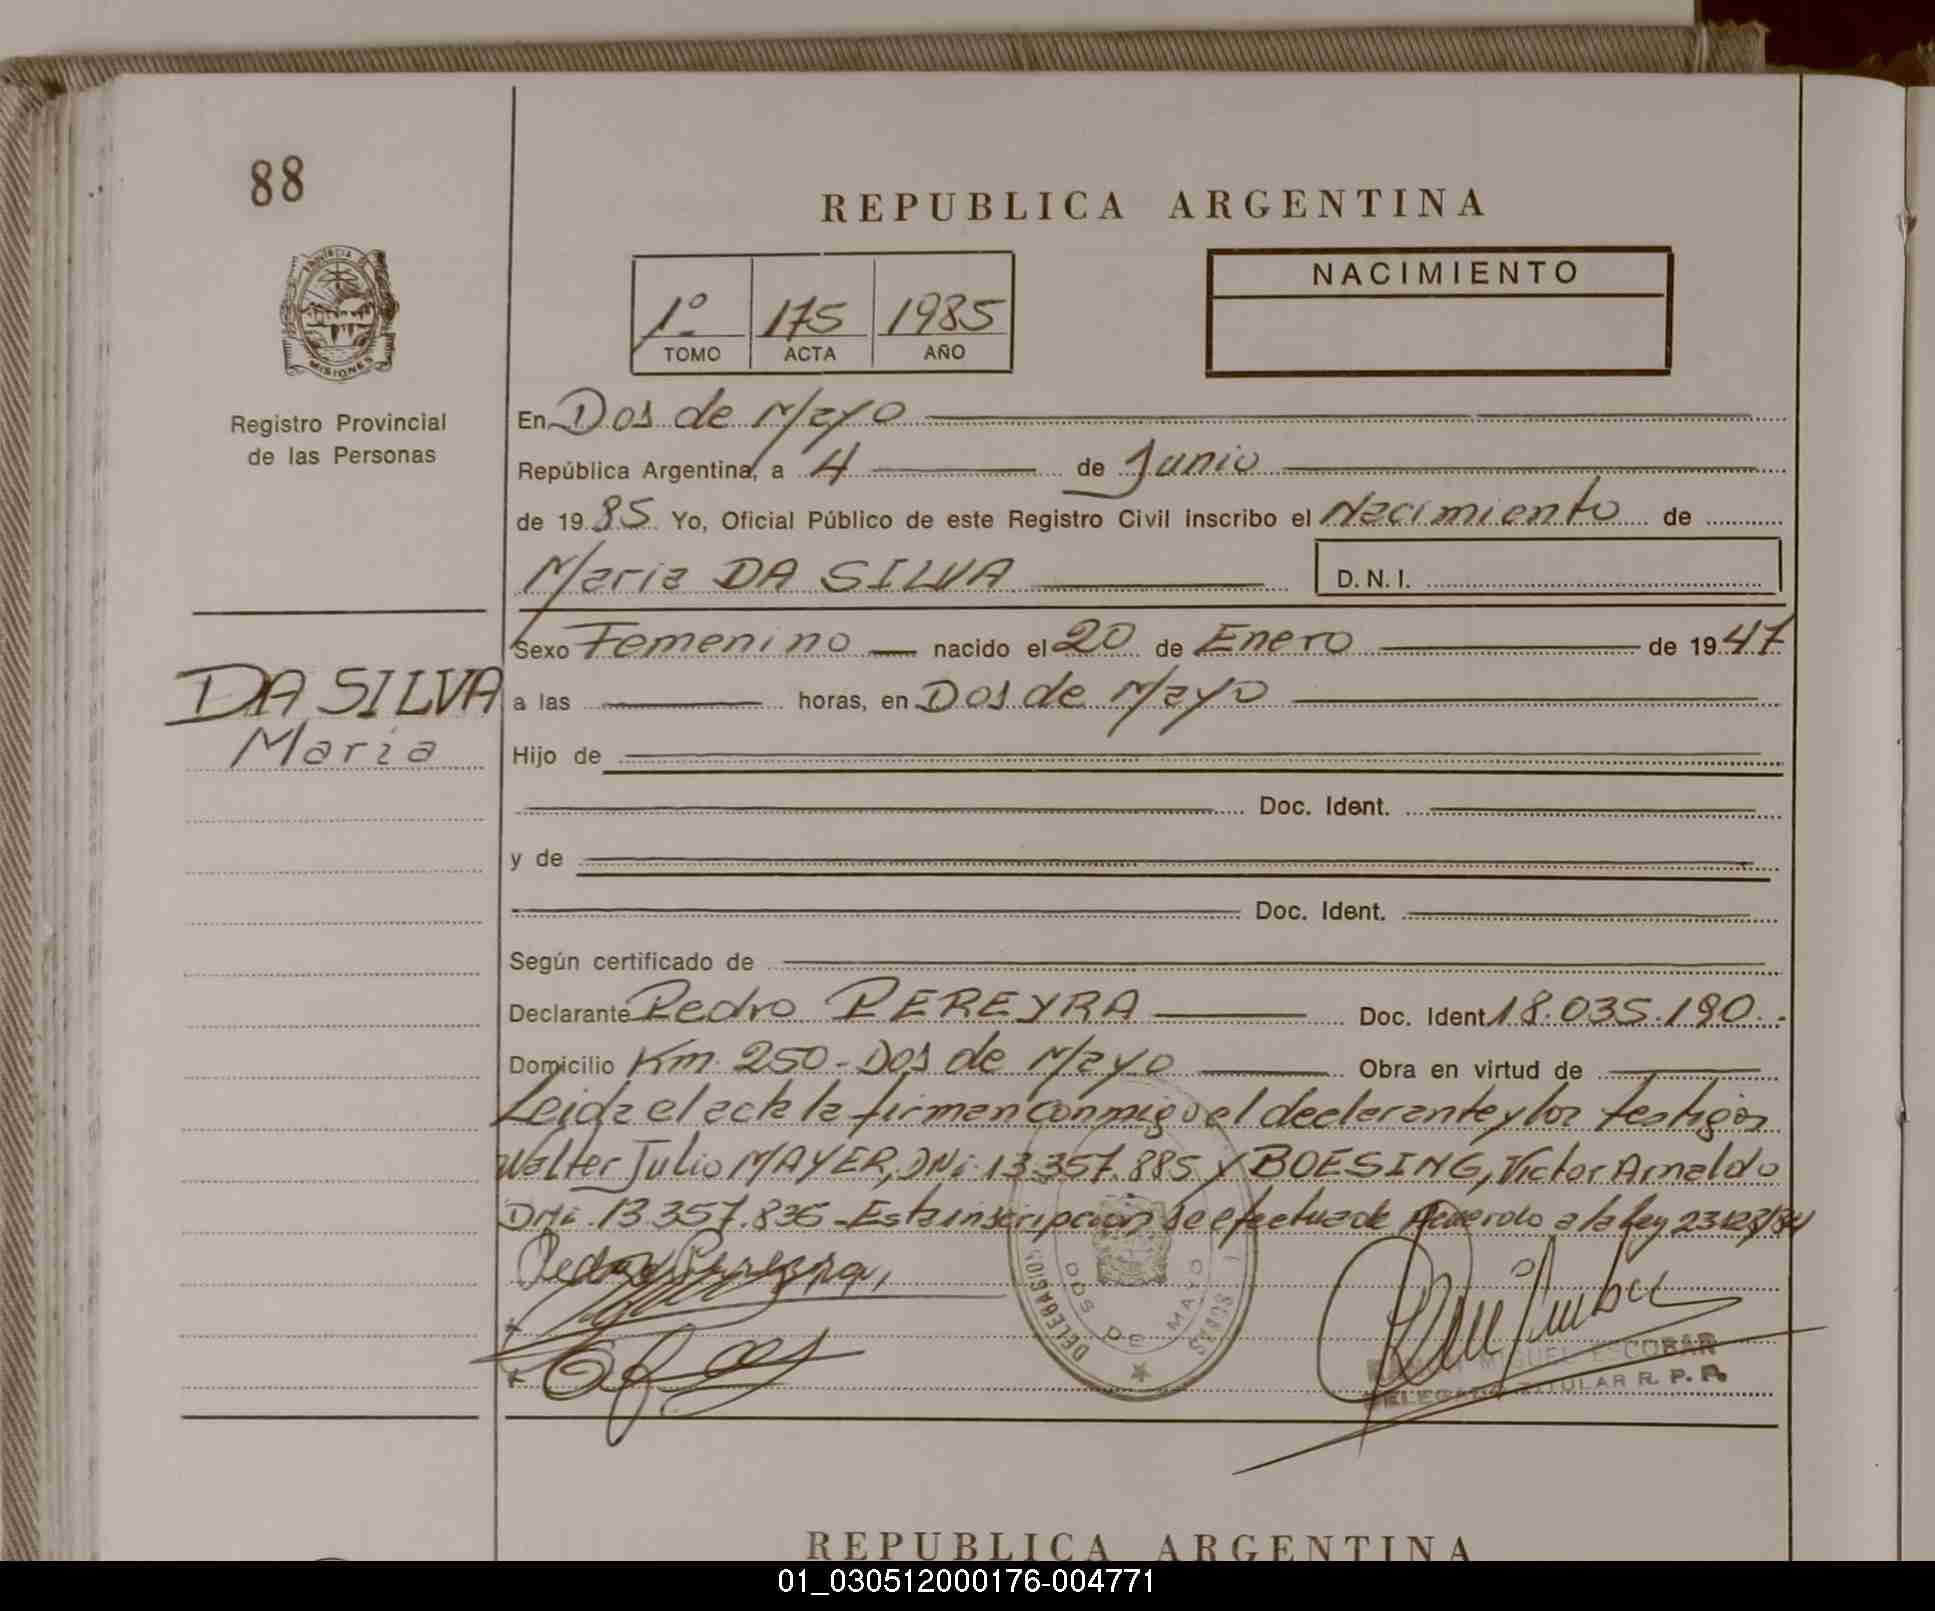 88
REPUBLICA ARGENTINA
PROVINCIA DE
MISIONES
Registro Provincial
de las Personas
1º 175 1985
TOMO ACTA AÑO
NACIMIENTO
En Dos de Mayo
República Argentina, a 4 de Junio
de 1985 Yo, Oficial Público de este Registro Civil inscribo el Nacimiento de
Maria DA SILVA D.N.I.
Sexo Femenino nacido el 20 de Enero de 1947
DA SILVA
Maria
a las horas, en Dos de Mayo
Hijo de
Doc. Ident.
y de
Doc. Ident.
Según certificado de
Declarante Pedro PEREYRA Doc. Ident. 18.035.190.-
Domicilio Km. 250 - Dos de Mayo Obra en virtud de
Leida el acta la firman conmigo el declarante y los testigos
Walter Julio MAYER, DNi. 13.357.885 y BOESING, Victor Arnaldo
DNi. 13.357.836 - Esta inscripcion se efectua de Acuerdo a la ley
Pedro Pereyra,
DELEGACION
DOS DE MAYO
MIGUEL ESCOBAR
DELEGADO TITULAR R. P. P.
REPUBLICA ARGENTINA
01_030512000176-004771